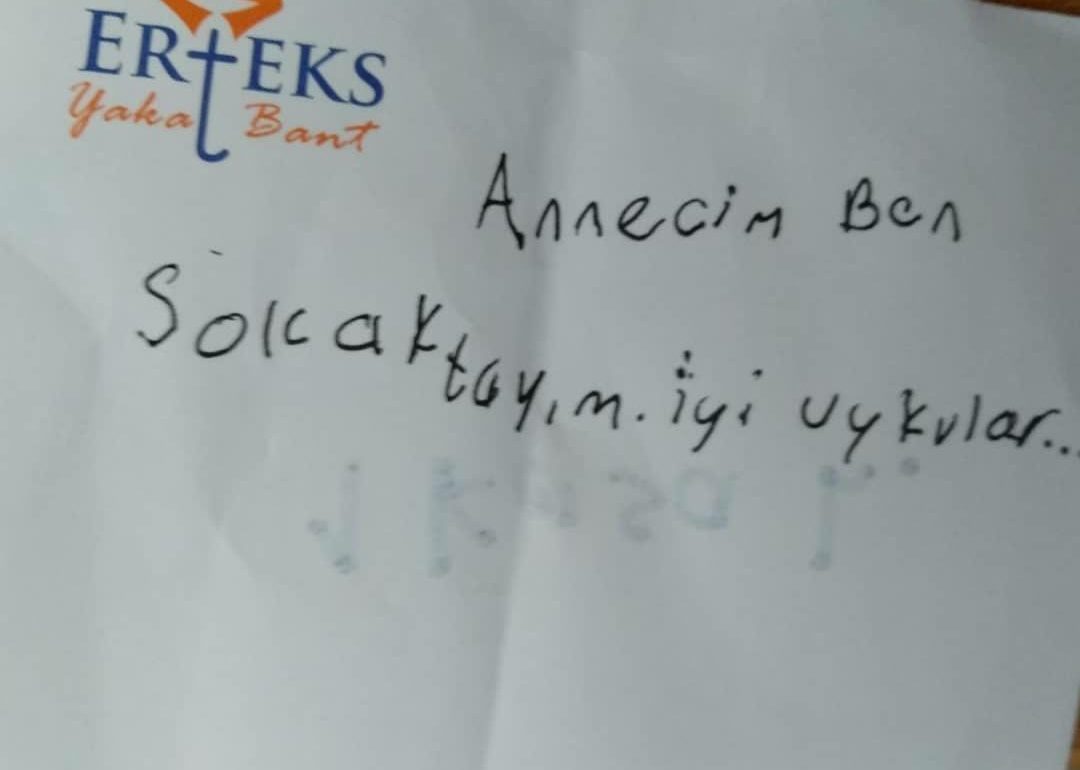 ERTEKS
Yaka Bant
Annecim Ben
Sokaktayım. İyi uykular...